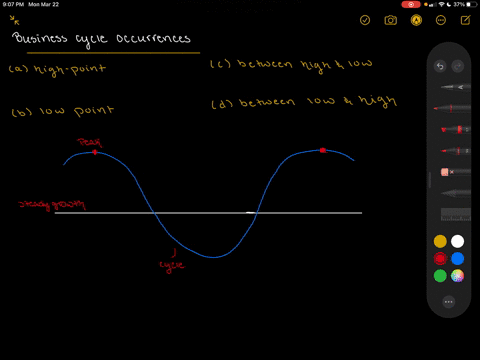 9:07 PM Mon Mar 22
37%
Business cycle occurrences
(a) high-point
(c) between high & low
(b) low point
(d) between low & high
Peak
steady growth
cycle